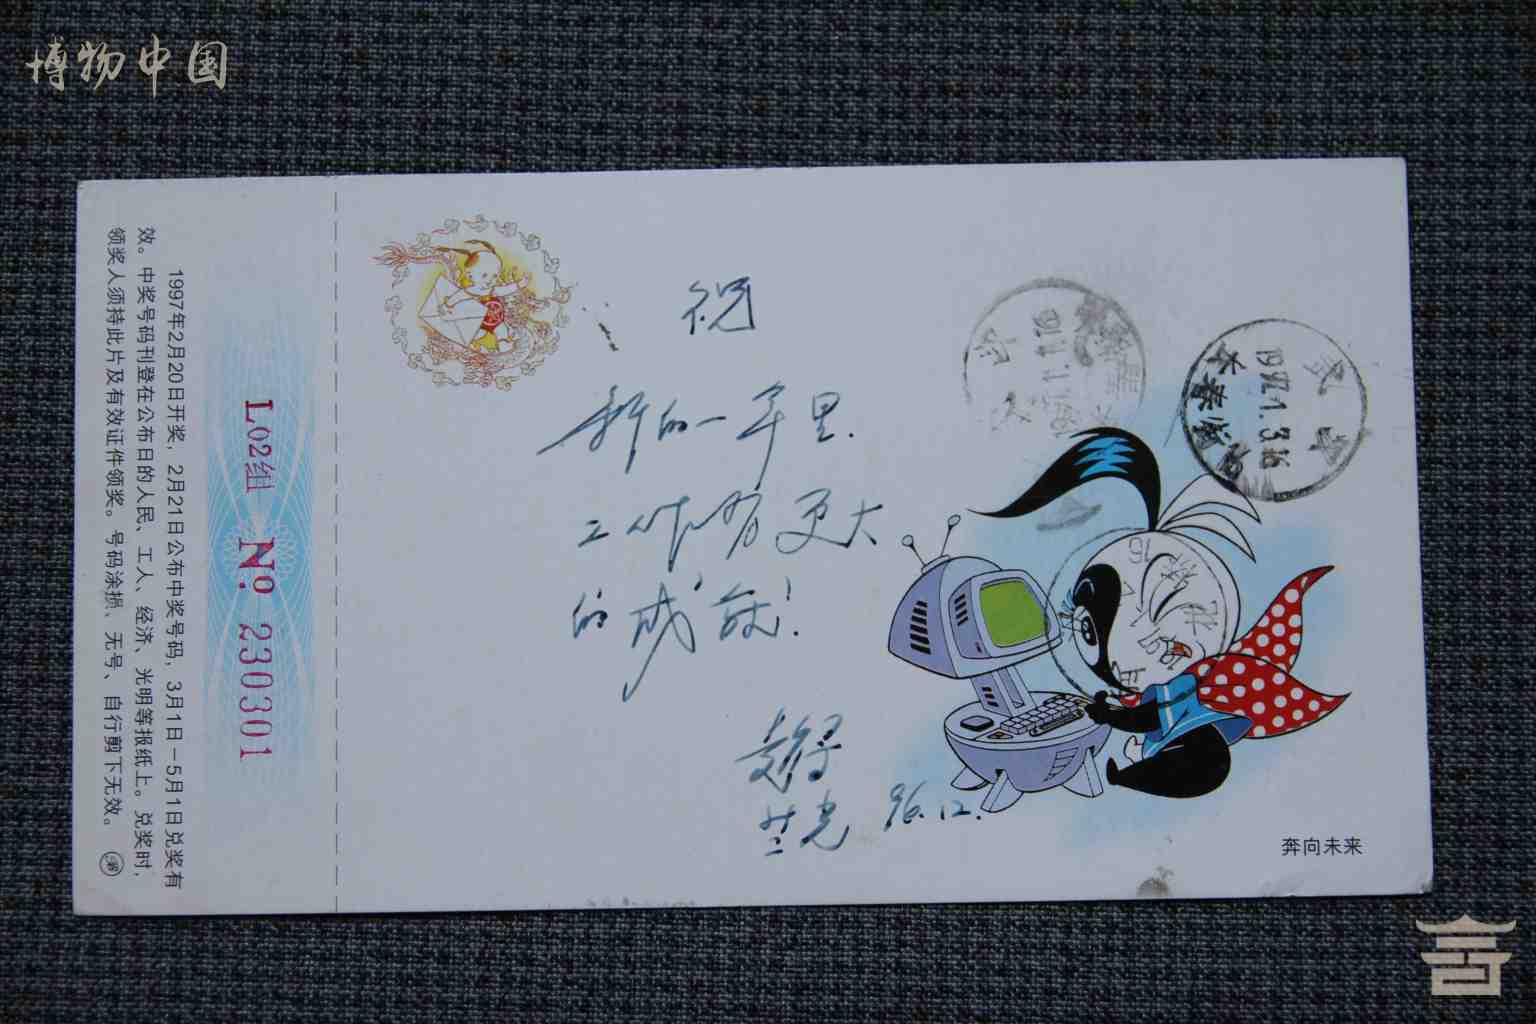 博物中国
1997年2月20日开奖，2月21日公布中奖号码，3月1日－5月1日兑奖有
效。中奖号码刊登在公布日的人民、工人、经济、光明等报纸上。兑奖时，
领奖人须持此片及有效证件领奖。号码涂损、无号、自行剪下无效。
L02组 No. 230301
祝
新的一年里.
工作有更大
的成就!
兰光 96.12.
1997.1.3.16
奔向未来